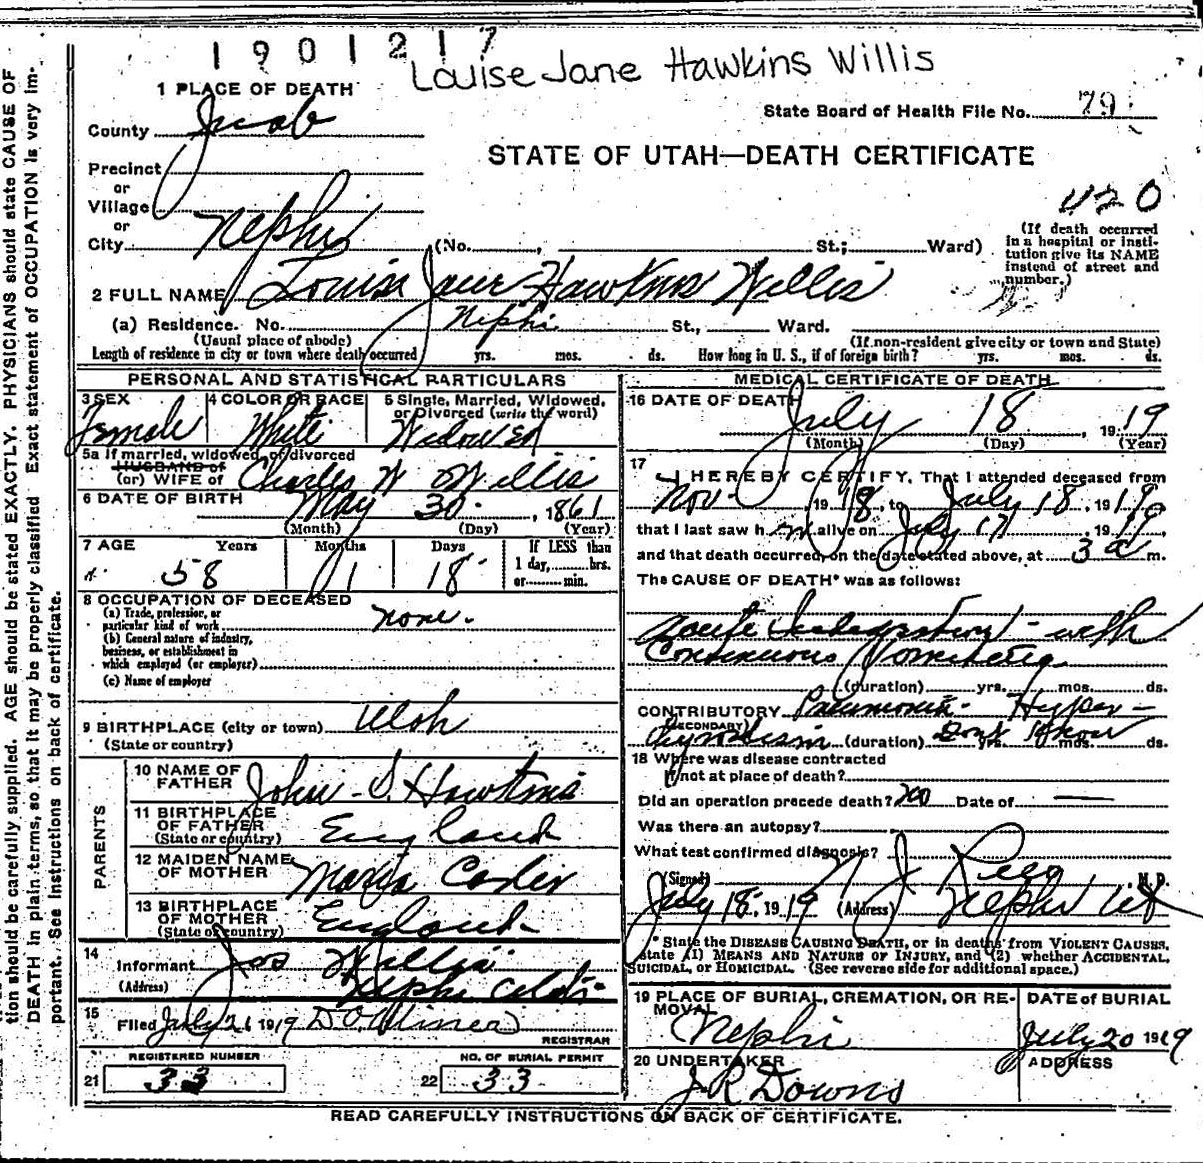 1901217
Louise Jane Hawkins Willis
1 PLACE OF DEATH
State Board of Health File No. 79
County
STATE OF UTAH—DEATH CERTIFICATE
Precinct
or
Village
420
or
City Nephi (No. , St.; Ward)
(If death occurred in a hospital or institution give its NAME instead of street and number.)
2 FULL NAME Louisa Jane Hawkins Willis
(a) Residence. No. Nephi St., Ward.
(Usual place of abode) (If non-resident give city or town and State)
Length of residence in city or town where death occurred yrs. mos. ds. How long in U. S., if of foreign birth? yrs. mos. ds.
PERSONAL AND STATISTICAL PARTICULARS
3 SEX 4 COLOR OR RACE 5 Single, Married, Widowed, or Divorced (write the word)
Female White Widowed
5a If married, widowed, or divorced
HUSBAND of
(or) WIFE of Charles W Willis
6 DATE OF BIRTH May 30 , 1861
(Month) (Day) (Year)
7 AGE Years Months Days If LESS than 1 day, hrs. or min.
58 1 18
8 OCCUPATION OF DECEASED
(a) Trade, profession, or particular kind of work none.
(b) General nature of industry, business, or establishment in which employed (or employer)
(c) Name of employer
9 BIRTHPLACE (city or town) Utah
(State or country)
PARENTS
10 NAME OF FATHER John S. Hawkins
11 BIRTHPLACE OF FATHER (State or country) England
12 MAIDEN NAME OF MOTHER
13 BIRTHPLACE OF MOTHER (State or country) England
14 Informant Jas Willis
(Address) Nephi Utah
15 Filed July 21 1919
REGISTRAR
REGISTERED NUMBER NO. OF BURIAL PERMIT
21 33 22 33
MEDICAL CERTIFICATE OF DEATH
16 DATE OF DEATH July 18 , 1919
(Month) (Day) (Year)
17 I HEREBY CERTIFY, That I attended deceased from
Nov- 1918, to July 18, 1919,
that I last saw h alive on July 17 1919,
and that death occurred, on the date stated above, at 3 a m.
The CAUSE OF DEATH* was as follows:
Acute Indigestion - with
Continuous Vomiting
(duration) yrs. mos. ds.
CONTRIBUTORY Pneumonia- Hyper-
(SECONDARY) thyroidism (duration) Dont Know yrs. mos. ds.
18 Where was disease contracted
if not at place of death?
Did an operation precede death? no Date of —
Was there an autopsy?
What test confirmed diagnosis?
(Signed) J , M. D.
July 18, 1919 (Address) Nephi Ut
* State the DISEASE CAUSING DEATH, or in deaths from VIOLENT CAUSES, state (1) MEANS AND NATURE OF INJURY, and (2) whether ACCIDENTAL, SUICIDAL, or HOMICIDAL. (See reverse side for additional space.)
19 PLACE OF BURIAL, CREMATION, OR REMOVAL DATE of BURIAL
Nephi July 20 1919
20 UNDERTAKER ADDRESS
J R Downs
READ CAREFULLY INSTRUCTIONS ON BACK OF CERTIFICATE.
tion should be carefully supplied. AGE should be stated EXACTLY. PHYSICIANS should state CAUSE OF
DEATH in plain terms, so that it may be properly classified. Exact statement of OCCUPATION is very im-
portant. See instructions on back of certificate.